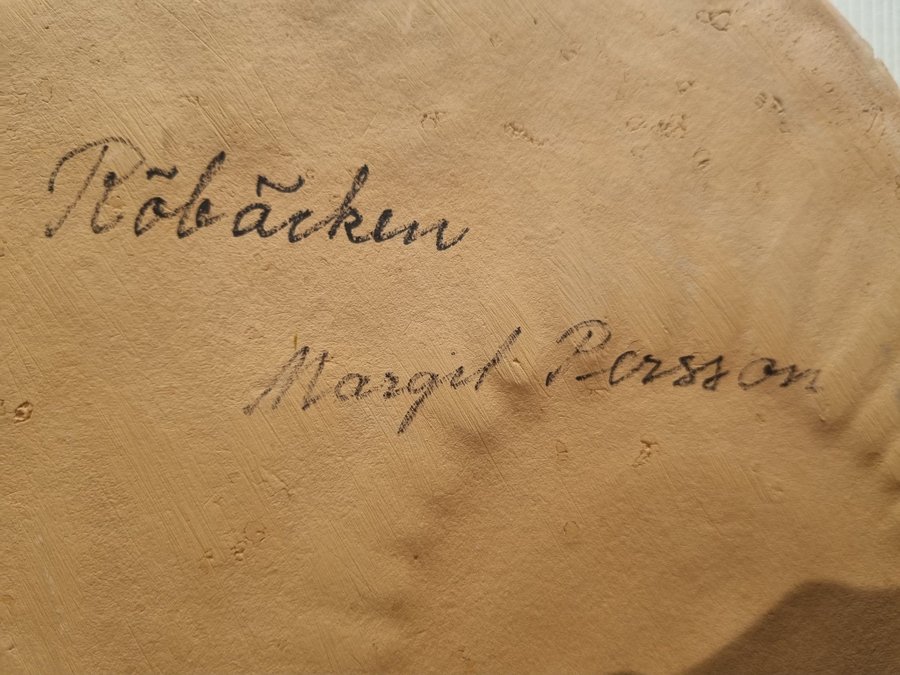 Röbäcken
Margit Persson